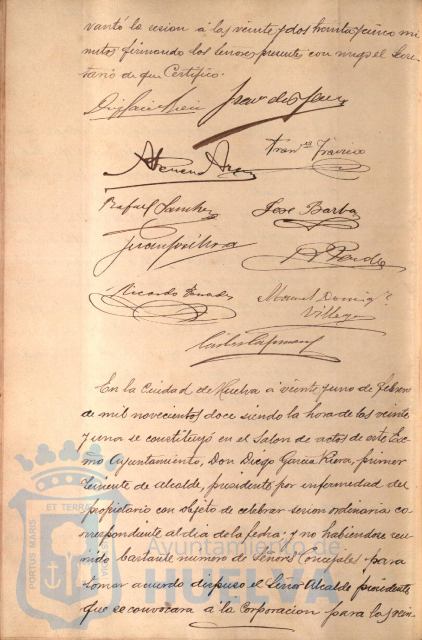 vantó la sesion á las veinte y dos treinta y cinco mi
nutos firmando los Señores presentes con migo el Secre-
tario de que Certifico.
Rafael Sanchez
José Barba
Ricardo
Manuel Doming.z
Villegas
En la Ciudad de Huelva á veinte y uno de Febrero
de mil novecientos doce siendo la hora de las veinte
y una se constituyó en el Salon de actos de este Exc
mo Ayuntamiento, Don Diego Garcia Riera, primer
Teniente de Alcalde, presidente por enfermedad del
propietario con objeto de celebrar sesion ordinaria co-
rrespondiente al dia de la fecha, y no habiendose reu
nido bastante numero de Señores Concejales para
tomar acuerdo dispuso el Señor Alcalde presidente
que se convocara á la Corporacion para las vein-
PORTUS MARIS
ET TERRAE
Ayuntamiento de
HUELVA